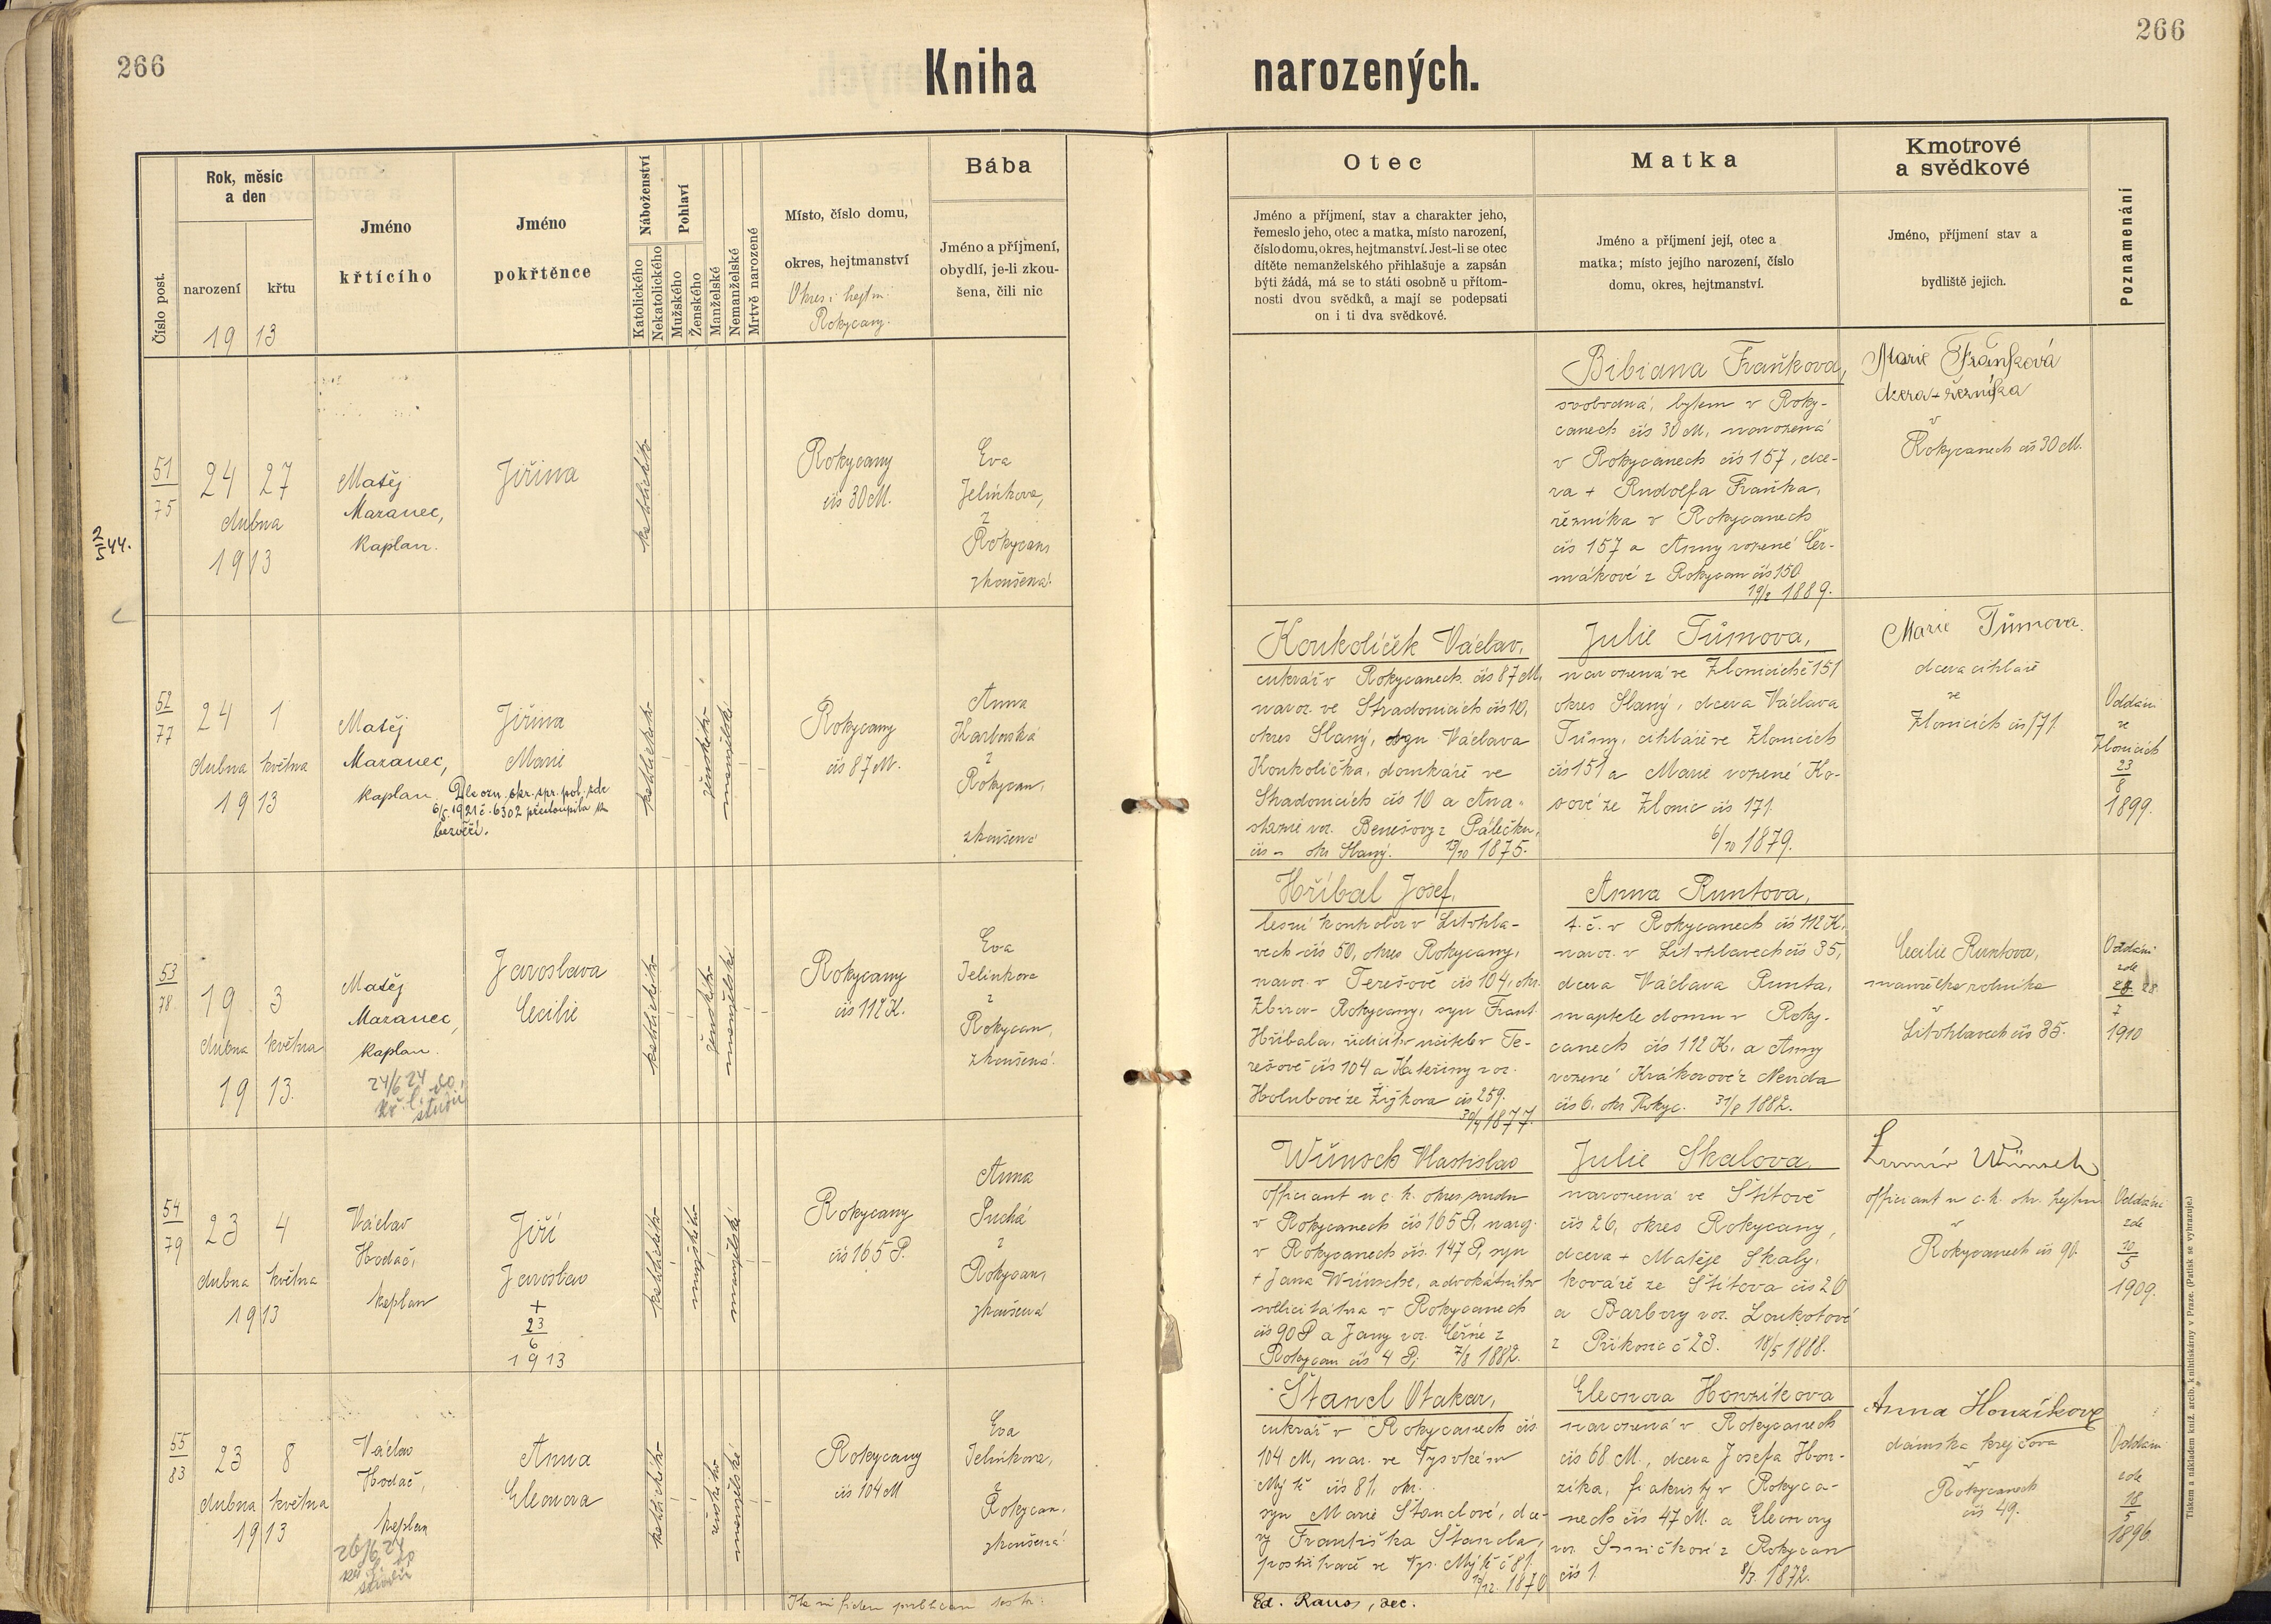 266
266
Kniha narozených.
Číslo post.
Rok, měsíc
a den
narození
křtu
19 13
Jméno
křtícího
Jméno
pokřtěnce
Náboženství
Katolického
Nekatolického
Pohlaví
Mužského
Ženského
Manželské
Nemanželské
Mrtvě narozené
Místo, číslo domu,
okres, hejtmanství
Okres i hejtm.
Rokycany.
Bába
Jméno a příjmení,
obydlí, je-li zkou-
šena, čili nic
Otec
Jméno a příjmení, stav a charakter jeho,
řemeslo jeho, otec a matka, místo narození,
číslo domu, okres, hejtmanství. Jest-li se otec
dítěte nemanželského přihlašuje a zapsán
býti žádá, má se to státi osobně u přítom-
nosti dvou svědků, a mají se podepsati
on i ti dva svědkové.
Matka
Jméno a příjmení její, otec a
matka; místo jejího narození, číslo
domu, okres, hejtmanství.
Kmotrové
a svědkové
Jméno, příjmení stav a
bydliště jejich.
Poznamenání
2/5 44.
51
75
24 27
dubna
1913
Matěj
Mazanec,
kaplan.
Jiřina
katolického
Rokycany
čís 30 M.
Eva
Jelínkova,
z
Rokycan
zkoušená.
Bibiana Fraňkova,
svobodná, bytem v Roky-
canech čís 30 M, narozená
v Rokycanech čís 157, dce-
ra + Rudolfa Fraňka,
řezníka v Rokycanech
čís 157 a Anny rozené Čer-
mákové z Rokycan čís 150
19/2 1889.
Marie Fraňková
dcera + řezníka
v
Rokycanech čís 30 M.
52
77
24 1
dubna května
1913
Matěj
Mazanec,
kaplan.
Jiřina
Marie
Dle ozn. okr. spr. pol. zde
6/5 1921 č. 6302 přestoupila k
bezvěří.
katolického
ženského
manželské
Rokycany
čís 87 M.
Anna
Karbovská
z
Rokycan,
zkoušená
Koukolíček Václav,
cukrář v Rokycanech čís 87 M,
naroz. ve Stradonicích čís 10,
okres Slaný, syn Václava
Koukolíčka, domkáře ve
Stradonicích čís 10 a Ana-
stazie roz. Benešovy z Pálečku,
čís – okr. Slaný. 1875.
Julie Tůmova,
narozená ve Zlonicích č 151
okres Slaný, dcera Václava
Tůmy, cihláře ve Zlonicích
čís 151 a Marie rozené Ko-
sové ze Zlonic čís 171.
6/10 1879.
Marie Tůmova.
dcera cihláře
ve
Zlonicích čís 171
Oddáni
ve
Zlonicích
23
8
1899.
53
78
19 3
dubna května
1913.
Matěj
Mazanec,
kaplan.
24/6 24 do
kř. l. do
studií
Jaroslava
Cecilie
katolického
ženského
manželské
Rokycany
čís 112 K.
Eva
Jelínkova
z
Rokycan,
zkoušená.
Hříbal Josef,
lesní kontrolor v Litohla-
vech čís 50, okres Rokycany,
naroz. v Terešově čís 104, okr.
Zbirov-Rokycany, syn Frant.
Hříbala, řídícího učitele v Te-
rešově čís 104 a Kateřiny roz.
Holubové ze Žižkova čís 259.
30/4 1877.
Anna Runtova,
t. č. v Rokycanech čís 112 K,
naroz. v Litohlavech čís 35,
dcera Václava Runta,
majitele domu v Roky-
canech čís 112 K. a Anny
rozené Krákorové z Nevida
čís 6, okr. Rokyc. 31/8 1882.
Cecilie Runtova,
manželka rolníka
v
Litohlavech čís 35.
Oddáni
zde
28 28
7
1910
54
79
23 4
dubna května
1913
Václav
Hodač,
kaplan
Jiří
Jaroslav
+
23
6
1913
katolického
mužského
manželské
Rokycany
čís 165 P.
Anna
Suchá
z
Rokycan,
zkoušená
Wünsch Vlastislav
officiant u c. k. okres. soudu
v Rokycanech čís 165 P, naroz.
v Rokycanech čís. 147 P, syn
+ Jana Wünsche, advokátního
sollicitátora v Rokycanech
čís 90 P a Jany roz. Černé z
Rokycan čís 4 P; 7/8 1882.
Julie Skalova,
narozená ve Štítově
čís 26, okres Rokycany,
dcera + Matěje Skaly,
kováře ze Štítova čís 26
a Barbory roz. Loukotové
z Příkosic č 23. 18/5 1888.
Lumír Wünsch
officiant u c. k. okr. hejtm.
v
Rokycanech čís 90.
Oddáni
zde
10
5
1909.
55
83
23 8
dubna května
1913
Václav
Hodač,
kaplan
26/6 24
kř. l. do
studií
Anna
Eleonora
katolického
ženského
manželské
Rokycany
čís 104 M
Eva
Jelínkova,
z
Rokycan,
zkoušená.
Štancl Otakar,
cukrář v Rokycanech čís
104 M, nar. ve Vysokém
Mýtě čís 81, okr. .
syn Marie Štanclové, dce-
ry Františka Štancla,
ve Vys. Mýtě č 81.
1870
Eleonora Honzíkova
narozená v Rokycanech
čís 68 M., dcera Josefa Hon-
zíka, fiakristy v Rokyca-
nech čís 47 M. a Eleonory
roz. Smíčkové z Rokycan
čís 1. 8/3 1872.
Anna Honzíkova
dámska krejčova
v
Rokycanech
čís 49.
Oddáni
zde
18
5
1896.
Ita in fidem publicam testor:
Ed. Raus, dec.
Tiskem a nákladem kníž. arcib. knihtiskárny v Praze. (Patisk se vyhrazuje.)